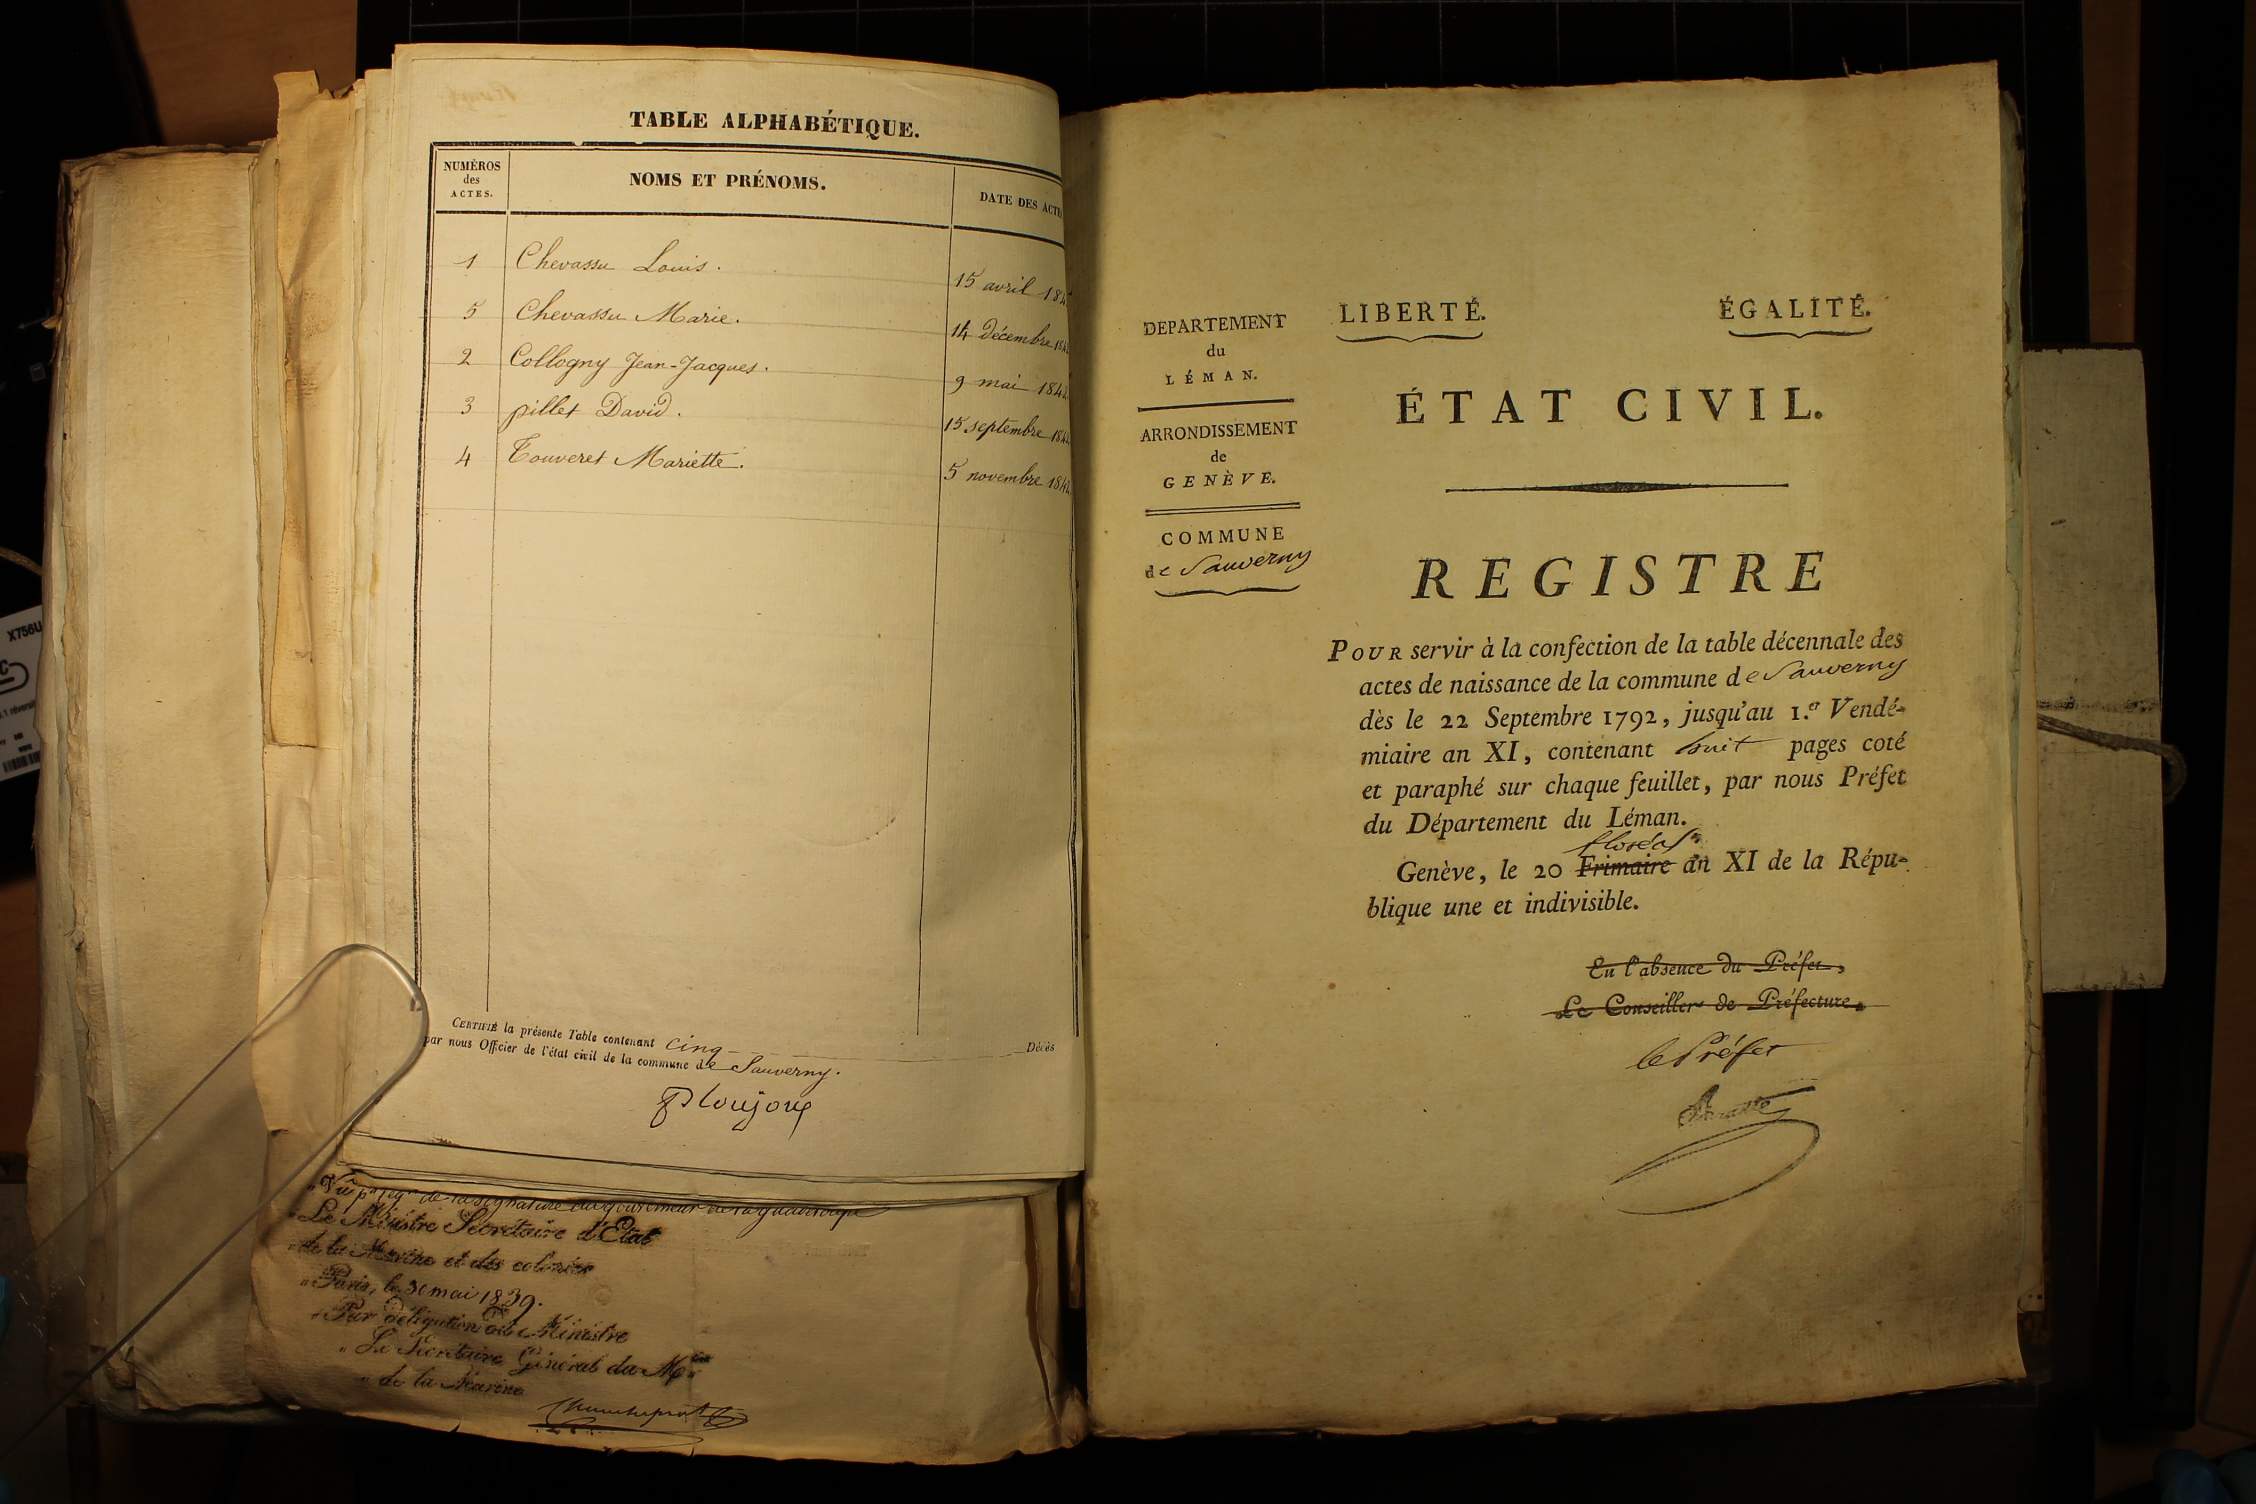 TABLE ALPHABÉTIQUE.
NUMÉROS
des
ACTES.
NOMS ET PRÉNOMS.
DATE DES ACTES
1 Chevassu Louis. 15 avril
5 Chevassu Marie. 14 décembre
2 Collogny Jean-Jacques. 9 mai 1842
3 pillet David. 15 septembre
4 Touveret Mariette. 5 novembre 1842
CERTIFIÉ la présente Table contenant cinq Décès
par nous Officier de l'état civil de la commune de Sauverny.
de la signature du Gouverneur de la Guadeloupe
"Le Ministre Secrétaire d'Etat
"de la Marine et des colonies
"Paris, le 30 mai 1839.
"Par délégation du Ministre
"Le Secrétaire Général du Mère
"de la Marine
X756U
DEPARTEMENT
du
LÉMAN.
ARRONDISSEMENT
de
GENÈVE.
COMMUNE
de Sauverny
LIBERTÉ. ÉGALITÉ.
ÉTAT CIVIL.
REGISTRE
POUR servir à la confection de la table décennale des
actes de naissance de la commune de Sauverny
dès le 22 Septembre 1792, jusqu'au 1.er Vendé-
miaire an XI, contenant huit pages coté
et paraphé sur chaque feuillet, par nous Préfet
du Département du Léman.
floréal
Genève, le 20 Frimaire an XI de la Répu-
blique une et indivisible.
En l'absence du Préfet,
Le Conseiller de Préfecture.
le Préfet